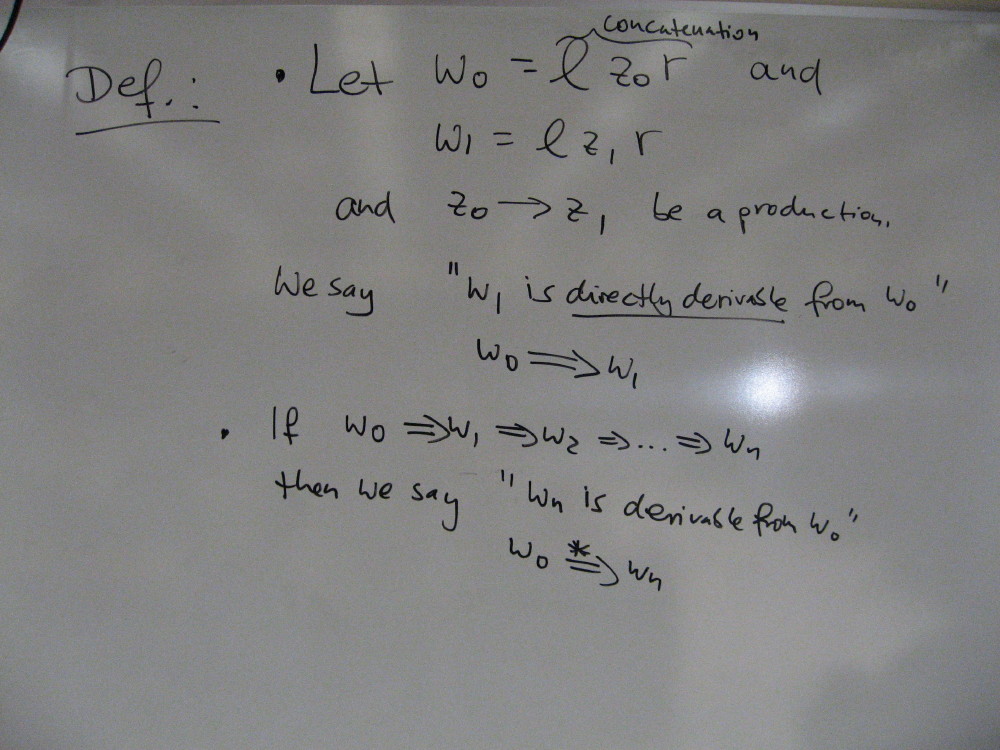 concatenation
Def.: • Let w₀ = ℓ z₀ r and
w₁ = ℓ z₁ r
and z₀ → z₁ be a production.
We say "w₁ is directly derivable from w₀"
w₀ ⟹ w₁
• If w₀ ⇒ w₁ ⇒ w₂ ⇒ ... ⇒ wₙ
then we say "wₙ is derivable from w₀"
w₀ ⇒* wₙ